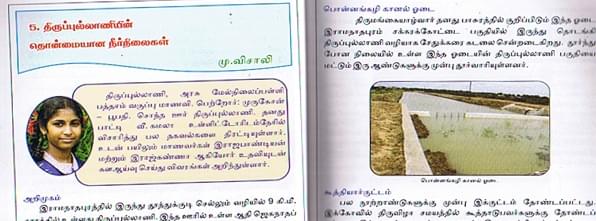 5. திருப்புல்லாணியின்
தொன்மையான நீர்நிலைகள்
மு.விசாலி
திருப்புல்லாணி, அரசு மேல்நிலைப்பள்ளி
பத்தாம் வகுப்பு மாணவி. பெற்றோர்: முருகேசன்
– பூபதி. சொந்த ஊர் திருப்புல்லாணி. தனது
பாட்டி வீ.கமலா உள்ளிட்டோரிடம்நேரில்
விசாரித்து பல தகவல்களை திரட்டியுள்ளார்.
உடன் பயிலும் மாணவர்கள் இராஜபாண்டியன்
மற்றும் இராஜ்கண்ணா ஆகியோர் உதவியுடன்
களஆய்வு செய்து விவரங்கள் அறிந்துள்ளார்.
அறிமுகம்
இராமநாதபுரத்தில் இருந்து தூத்துக்குடி செல்லும் வழியில் 9 கி.மீ.
உள்ளது திருப்புல்லாணி. இந்த ஊரில் உள்ள ஆதி ஜெகநாதப்
பொன்னங்கழி கானல் ஓடை
திருமங்கையாழ்வார் தனது பாசுரத்தில் குறிப்பிடும் இந்த ஓடை
இராமநாதபுரம் சக்கரக்கோட்டை பகுதியில் இருந்து தொடங்கி
திருப்புல்லாணி வழியாக சேதுக்கரை கடலை சென்றடைகிறது. தூர்ந்து
போன நிலையில் உள்ள இந்த ஓடையின் திருப்புல்லாணி பகுதியை
மட்டும் இரு ஆண்டுகளுக்கு முன்பு தூர்வாரியுள்ளனர்.
பொன்னங்கழி கானல் ஓடை
கூத்தியார்குட்டம்
பல நூற்றாண்டுகளுக்கு முன்பு இக்குட்டம் தோண்டப்பட்டது.
இக்கோவில் திருவிழா சமயத்தில் கூத்தாடுபவர்களுக்கு தோண்டப்